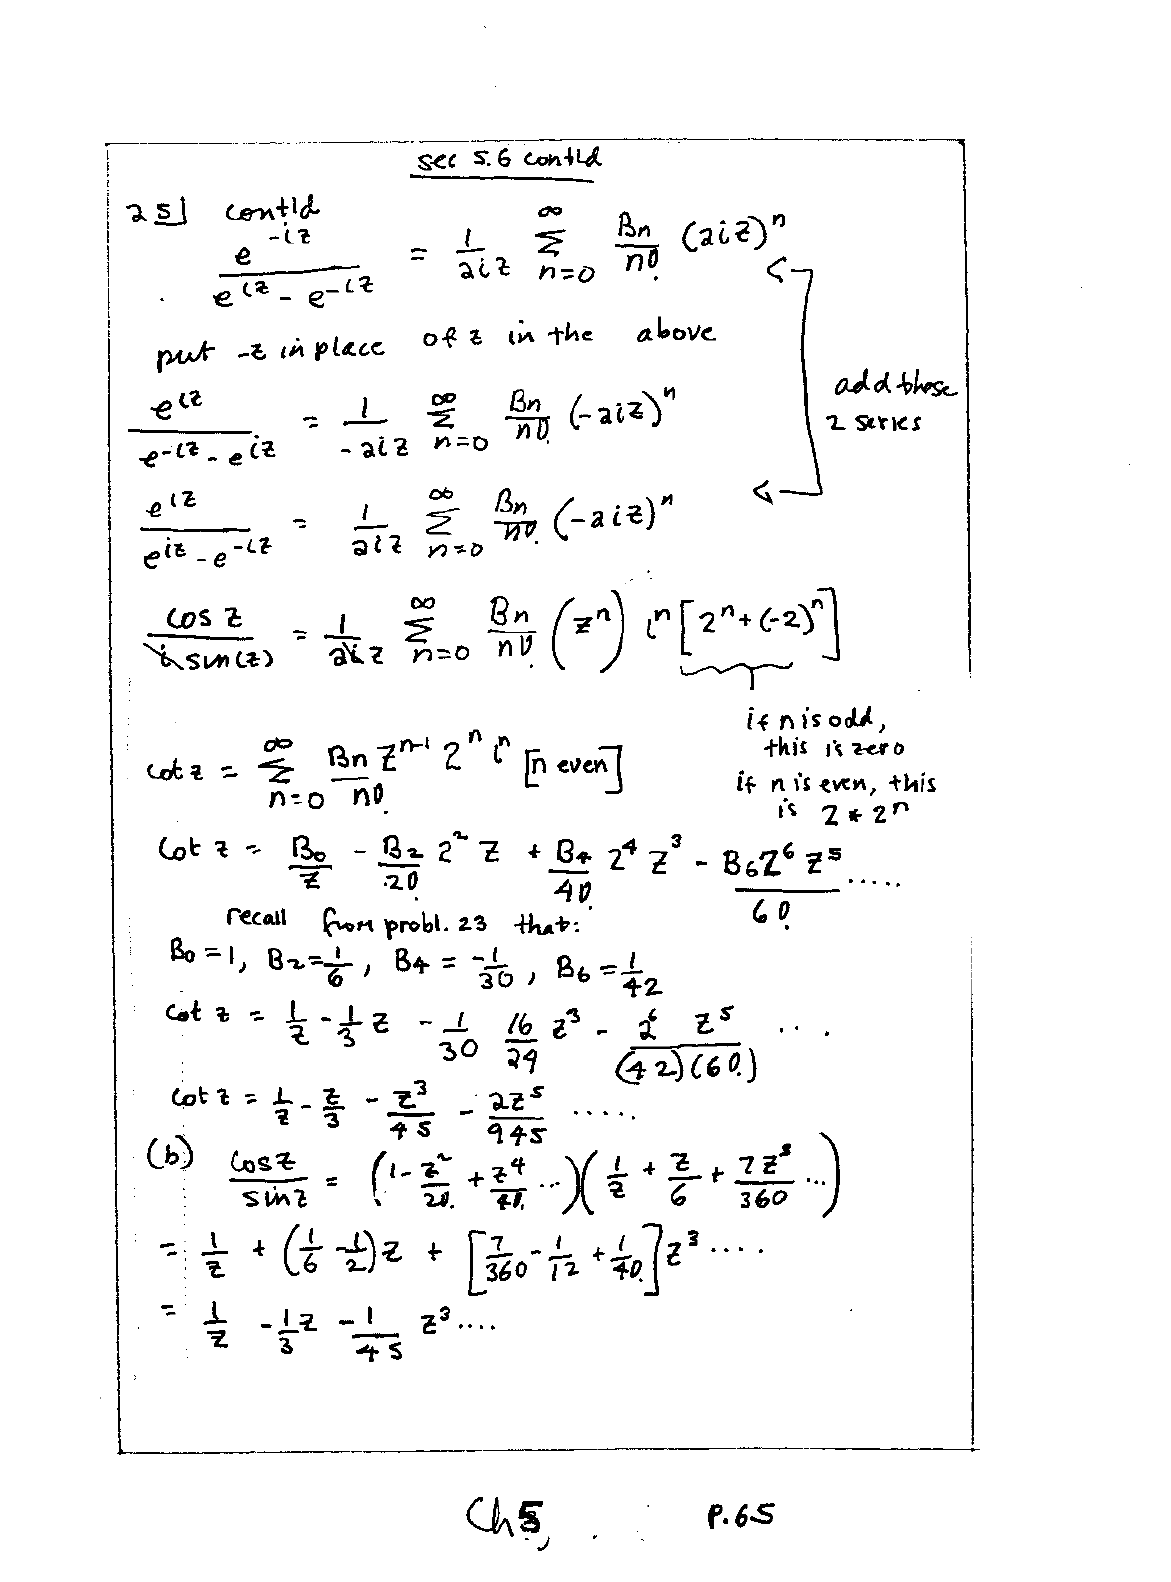 sec 5.6 cont'd
25] cont'd
e^{-iz} / (e^{iz} - e^{-iz}) = 1/(2iz) ∑_{n=0}^{∞} Bn/n! (2iz)^n
put -z in place of z in the above
e^{iz} / (e^{-iz} - e^{iz}) = 1/(-2iz) ∑_{n=0}^{∞} Bn/n! (-2iz)^n
add these
2 series
e^{iz} / (e^{iz} - e^{-iz}) = 1/(2iz) ∑_{n=0}^{∞} Bn/n! (-2iz)^n
cos z / (i sin(z)) = 1/(2iz) ∑_{n=0}^{∞} Bn/n! (z^n) i^n [2^n + (-2)^n]
if n is odd,
this is zero
if n is even, this
is 2 * 2^n
cot z = ∑_{n=0}^{∞} Bn/n! z^{n-1} 2^n i^n [n even]
cot z = B0/z - B2/2! 2^2 z + B4/4! 2^4 z^3 - B6 2^6 z^5 / 6! .....
recall from probl. 23 that:
B0 = 1, B2 = 1/6, B4 = -1/30, B6 = 1/42
cot z = 1/z - 1/3 z - 1/30 16/24 z^3 - 2^6 z^5 / (42)(6!) ....
cot z = 1/z - z/3 - z^3/45 - 2z^5/945 .....
(b) cos z / sin z = (1 - z^2/2! + z^4/4! ...)(1/z + z/6 + 7z^3/360 ...)
= 1/z + (1/6 - 1/2)z + [7/360 - 1/12 + 1/4!] z^3 ....
= 1/z - 1/3 z - 1/45 z^3 ....
Ch 5, P.65